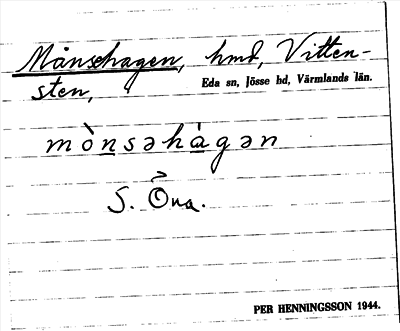 Månsehagen, hmd, Vitten-
sten,
Eda sn, Jösse hd, Värmlands län.
mò̱nsəhà̱gən
S. Öna.
PER HENNINGSSON 1944.